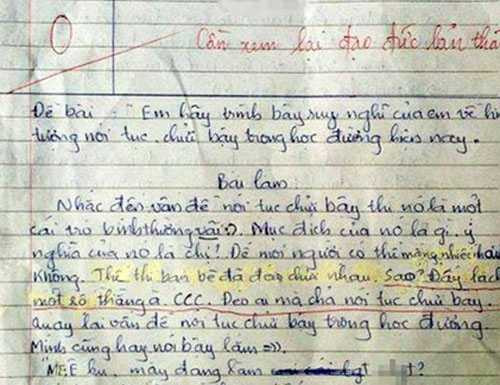 0
Cần xem lại đạo đức bản thâ
Đề bài : Em hãy trình bày suy nghĩ của em về hi
tượng nói tục chửi bậy trong học đường hiện nay.
Bài làm
Nhắc đến vấn đề nói tục chửi bậy thì nó là một
cái trò bình thường vãi :)). Mục đích của nó là gì. ý
nghĩa của nó là chi! Để mọi người có thể mắng nhiếc nhau
không. Thế thì bạn bè đã đéo chửi nhau. Sao? Đấy là cách
một số thằng ạ. CCC. Đéo ai mà chả nói tục chửi bậy.
Quay lại vấn đề nói tục chửi bậy trong học đường.
Mình cũng hay nói bậy lắm =)).
ku, mày đang làm